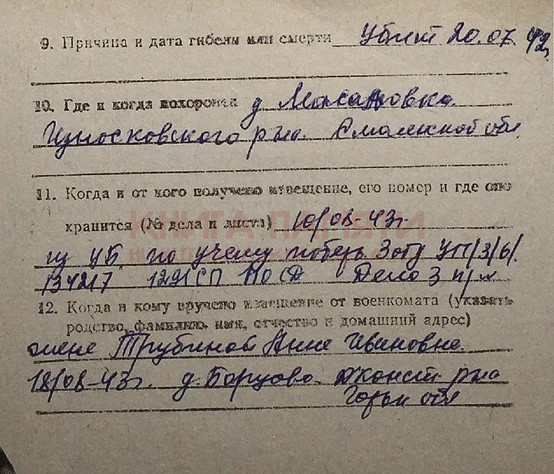 9. Причина и дата гибели или смерти убит 20.07.42
10. Где и когда похоронен д.
Износковского р-на. Смоленской обл
11. Когда и от кого получено извещение, его номер и где
хранится (№ дела и листа) 10/08-43г
по учету потерь
134217 1291СП 110СД Дело 3
12. Когда и кому вручено извещение от военкомата (указать
родство, фамилию, имя, отчество и домашний адрес)
жене Трубиной Анне Ивановне
18/08-43г. д. Борцово р-на
Горьк обл